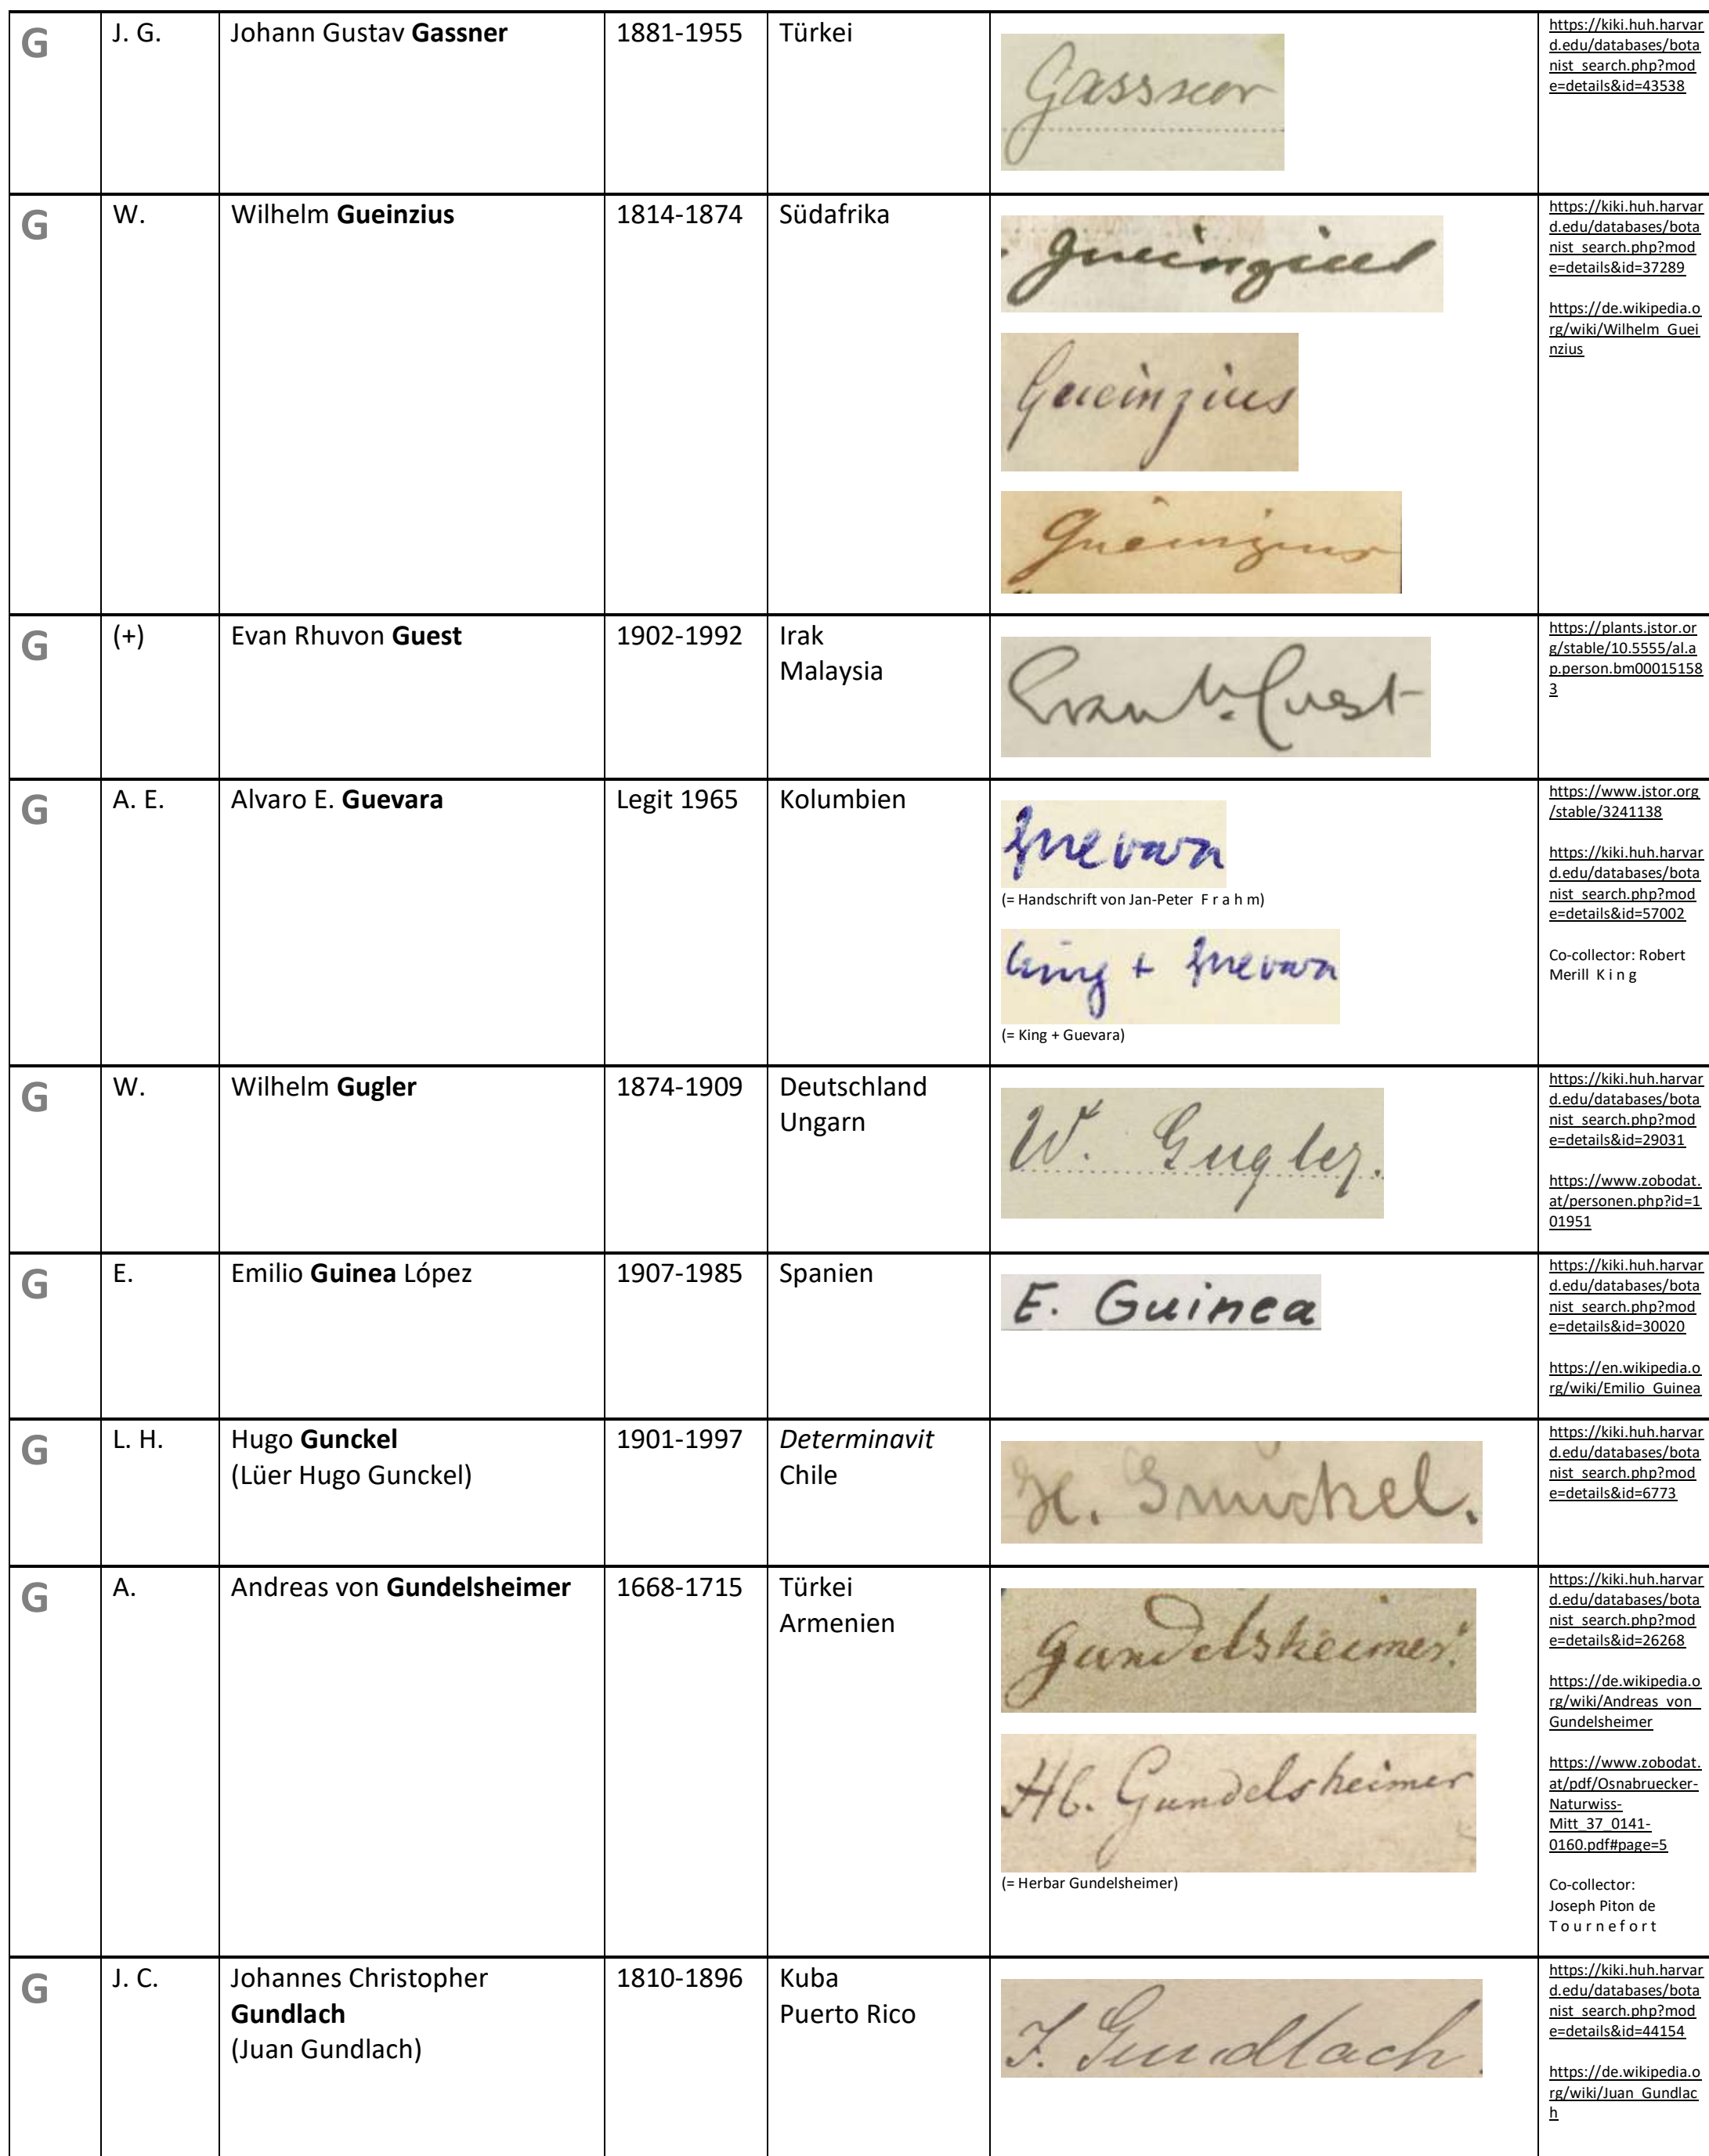 G
J. G.
Johann Gustav Gassner
1881-1955
Türkei
Gassner
https://kiki.huh.harvar
d.edu/databases/bota
nist_search.php?mod
e=details&id=43538
G
W.
Wilhelm Gueinzius
1814-1874
Südafrika
Gueinzius
Gueinzius
Gueinzius
https://kiki.huh.harvar
d.edu/databases/bota
nist_search.php?mod
e=details&id=37289
https://de.wikipedia.o
rg/wiki/Wilhelm_Guei
nzius
G
(+)
Evan Rhuvon Guest
1902-1992
Irak
Malaysia
Evan R. Guest
https://plants.jstor.or
g/stable/10.5555/al.a
p.person.bm00015158
3
G
A. E.
Alvaro E. Guevara
Legit 1965
Kolumbien
Guevara
(= Handschrift von Jan-Peter F r a h m)
King + Guevara
(= King + Guevara)
https://www.jstor.org
/stable/3241138
https://kiki.huh.harvar
d.edu/databases/bota
nist_search.php?mod
e=details&id=57002
Co-collector: Robert
Merill K i n g
G
W.
Wilhelm Gugler
1874-1909
Deutschland
Ungarn
W. Gugler.
https://kiki.huh.harvar
d.edu/databases/bota
nist_search.php?mod
e=details&id=29031
https://www.zobodat.
at/personen.php?id=1
01951
G
E.
Emilio Guinea López
1907-1985
Spanien
E. Guinea
https://kiki.huh.harvar
d.edu/databases/bota
nist_search.php?mod
e=details&id=30020
https://en.wikipedia.o
rg/wiki/Emilio_Guinea
G
L. H.
Hugo Gunckel
(Lüer Hugo Gunckel)
1901-1997
Determinavit
Chile
H. Gunckel.
https://kiki.huh.harvar
d.edu/databases/bota
nist_search.php?mod
e=details&id=6773
G
A.
Andreas von Gundelsheimer
1668-1715
Türkei
Armenien
Gundelsheimer.
Hb. Gundelsheimer
(= Herbar Gundelsheimer)
https://kiki.huh.harvar
d.edu/databases/bota
nist_search.php?mod
e=details&id=26268
https://de.wikipedia.o
rg/wiki/Andreas_von_
Gundelsheimer
https://www.zobodat.
at/pdf/Osnabruecker-
Naturwiss-
Mitt_37_0141-
0160.pdf#page=5
Co-collector:
Joseph Piton de
T o u r n e f o r t
G
J. C.
Johannes Christopher
Gundlach
(Juan Gundlach)
1810-1896
Kuba
Puerto Rico
J. Gundlach.
https://kiki.huh.harvar
d.edu/databases/bota
nist_search.php?mod
e=details&id=44154
https://de.wikipedia.o
rg/wiki/Juan_Gundlac
h